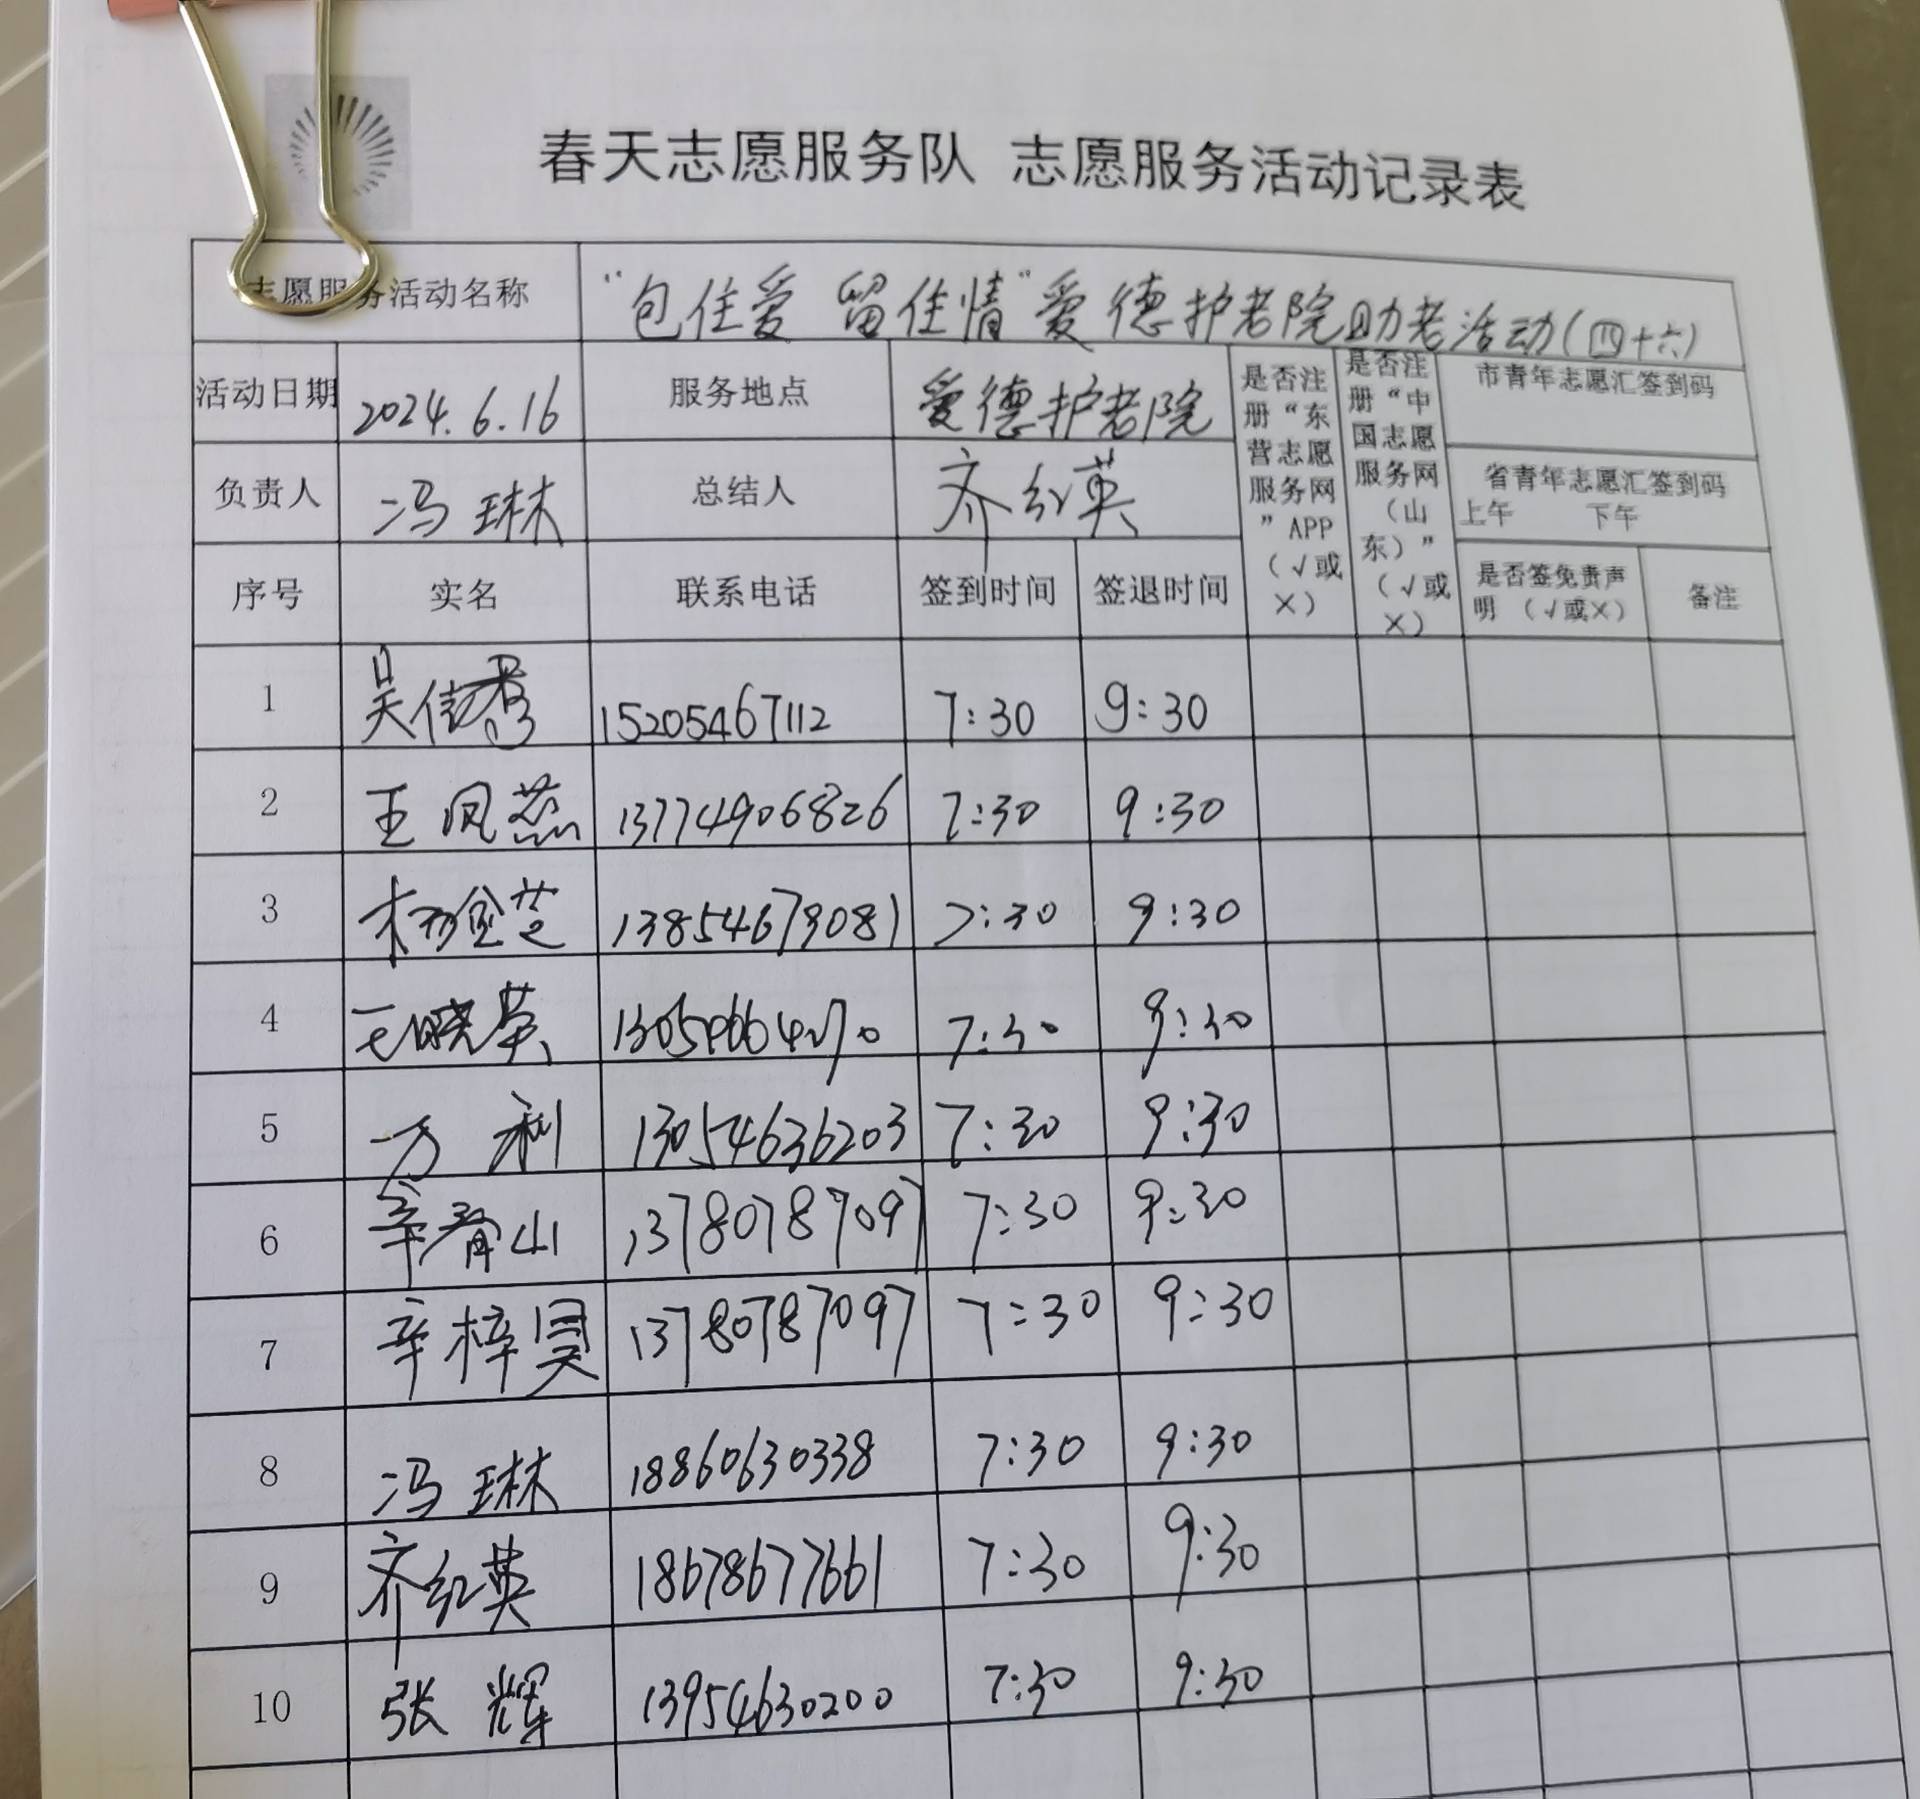 春天志愿服务队 志愿服务活动记录表
志愿服务活动名称 “包住爱 留住情”爱德护老院助老活动(四十六)
活动日期 2024.6.16 服务地点 爱德护老院
负责人 冯琳 总结人 齐红英
是否注册“东营志愿服务网”APP(√或×)
是否注册“中国志愿服务网(山东)”(√或×)
市青年志愿汇签到码
省青年志愿汇签到码
上午 下午
序号 实名 联系电话 签到时间 签退时间 是否签免责声明 (√或×) 备注
1 吴倩秀 15205467112 7:30 9:30
2 王凤燕 13774906826 7:30 9:30
3 杨金芝 13854679081 7:30 9:30
4 王晓英 7:30 9:30
5 万利 13054636203 7:30 9:30
6 辛脊山 13780787097 7:30 9:30
7 辛梓昊 13780787097 7:30 9:30
8 冯琳 18860630338 7:30 9:30
9 齐红英 18678677661 7:30 9:30
10 张辉 13954630200 7:30 9:30